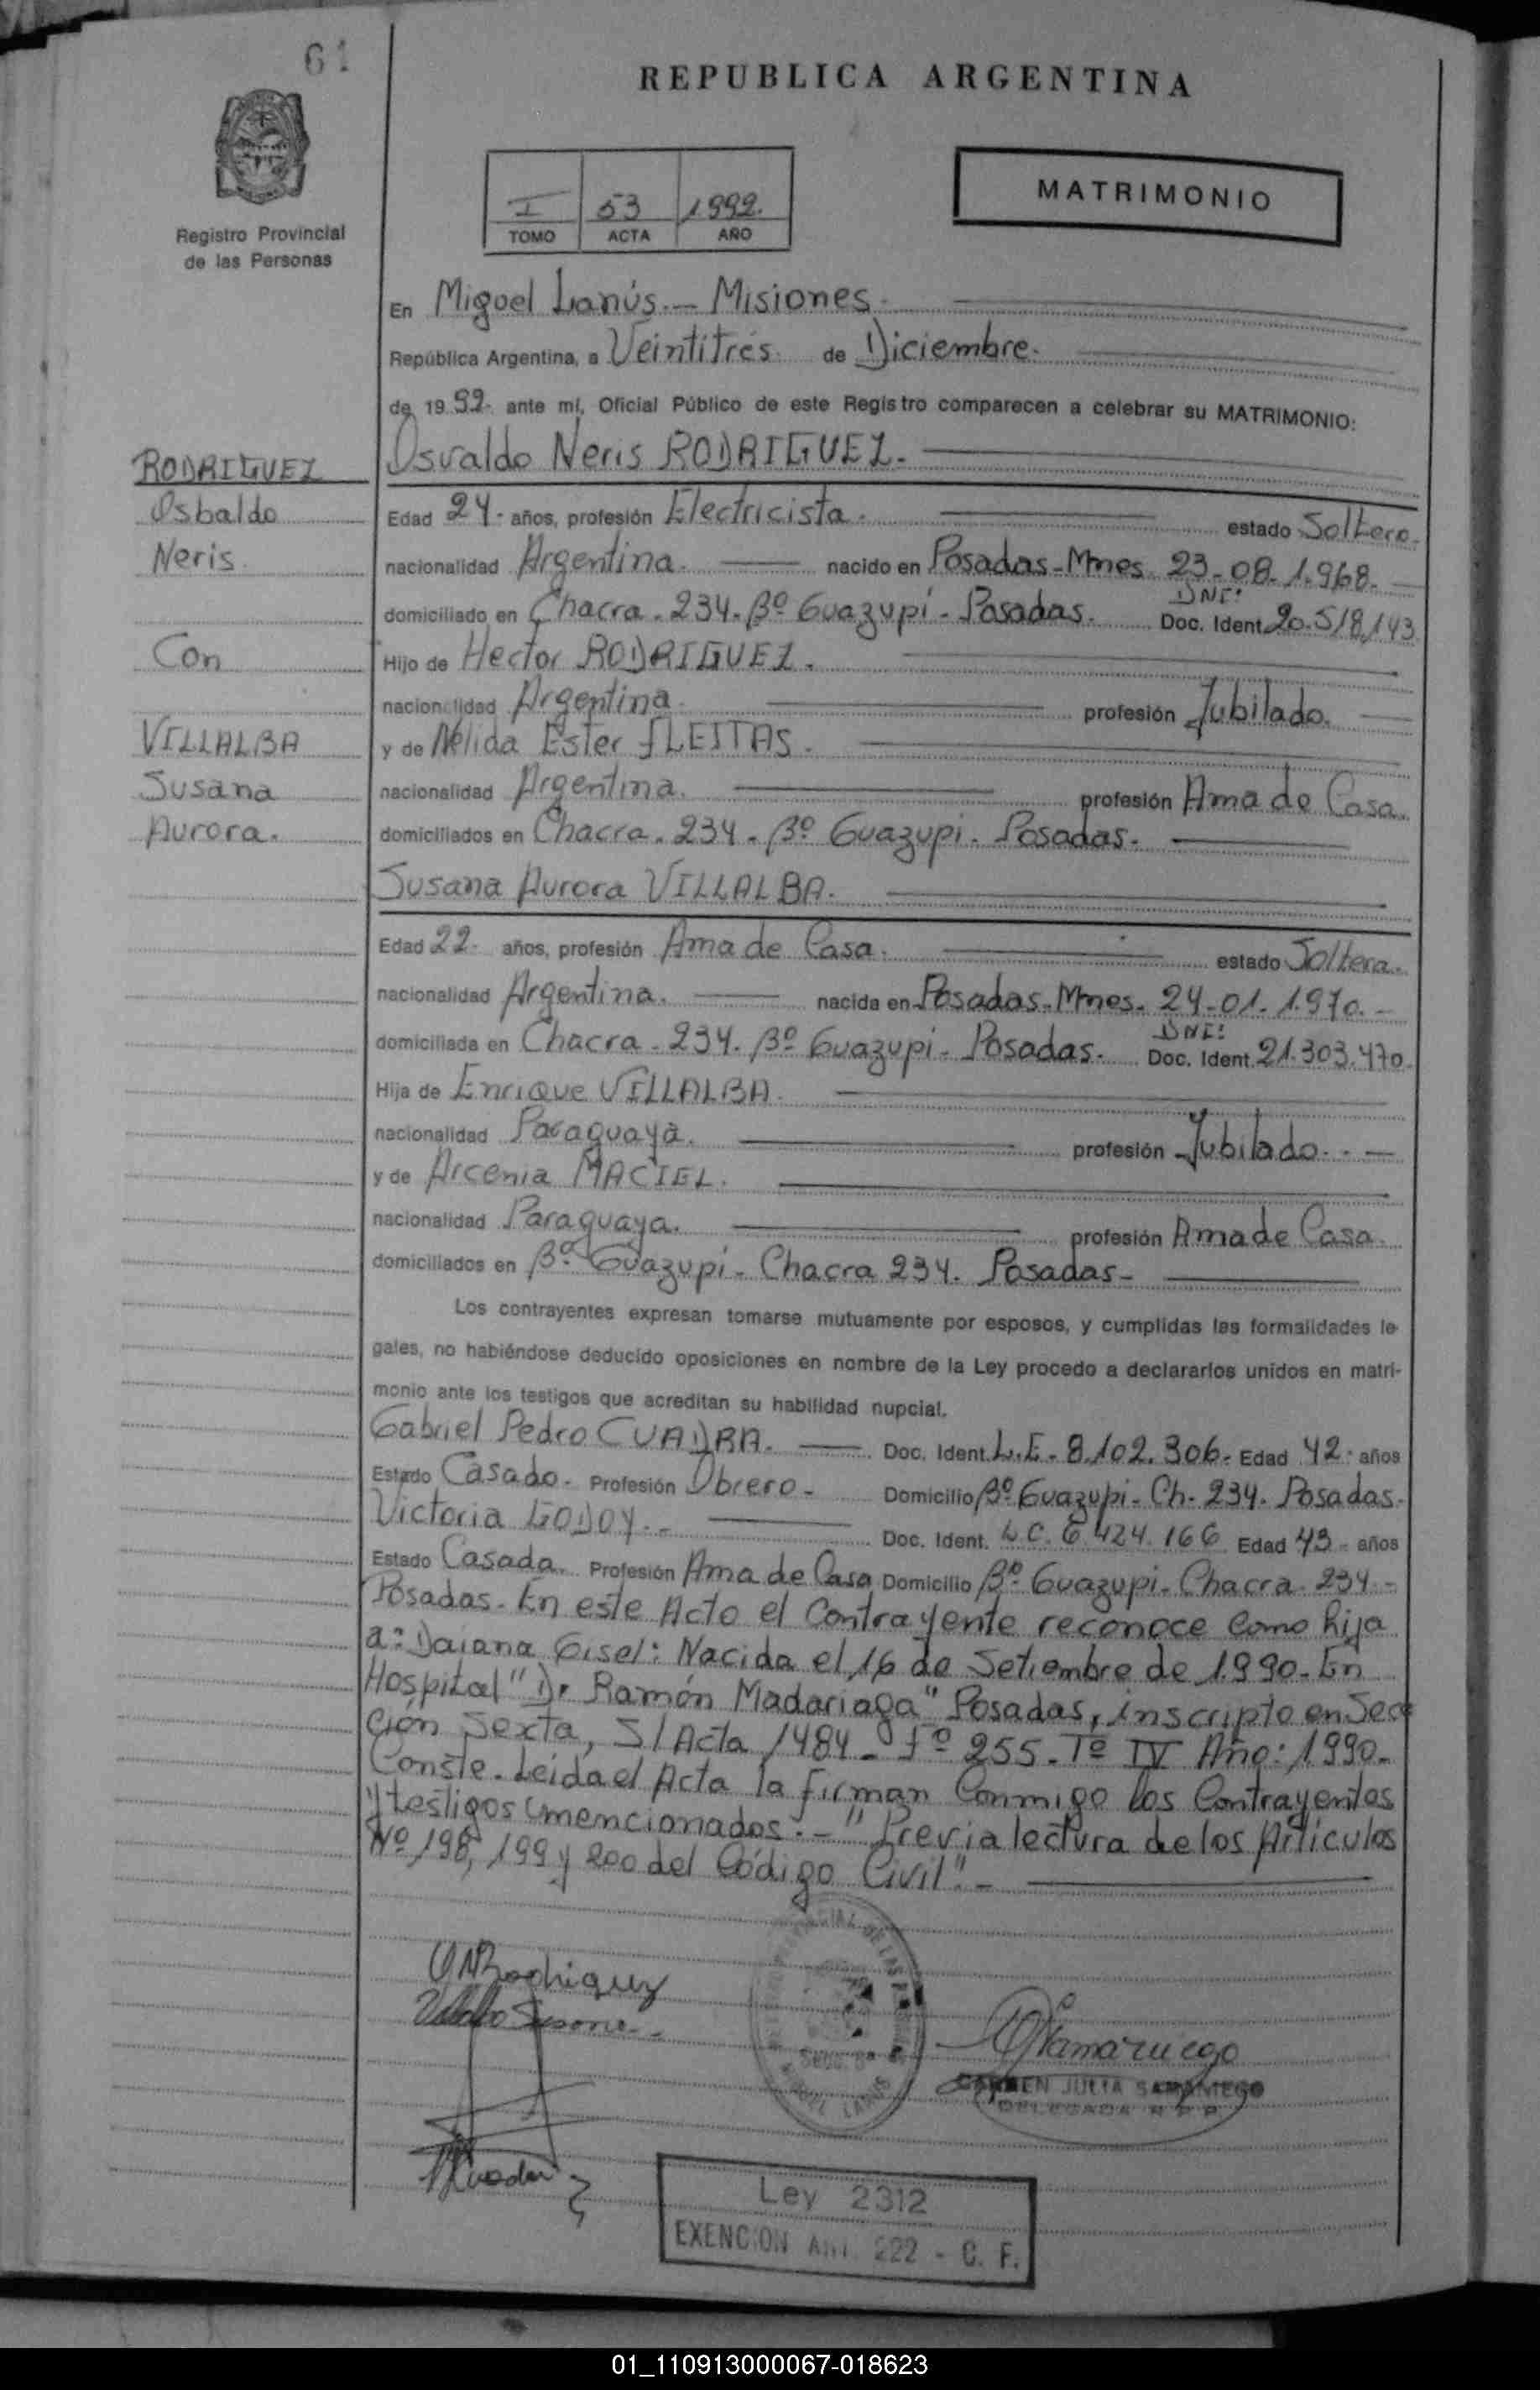 61
REPUBLICA ARGENTINA
Registro Provincial
de las Personas
I 53 1992.
TOMO ACTA AÑO
MATRIMONIO
En Miguel Lanús.- Misiones.
República Argentina, a Veintitrés de Diciembre.
de 1992. ante mí, Oficial Público de este Registro comparecen a celebrar su MATRIMONIO:
RODRIGUEZ
Osbaldo
Neris.
Con
VILLALBA
Susana
Aurora.
Osvaldo Neris RODRIGUEZ.
Edad 24. años, profesión Electricista. estado Soltero.
nacionalidad Argentina. nacido en Posadas-Mnes. 23-08-1.968.
domiciliado en Chacra.234.Bº Guazupí-Posadas. DNI: Doc. Ident. 20.518.143
Hijo de Hector RODRIGUEZ.
nacionalidad Argentina. profesión Jubilado.
y de Nélida Ester fLEITAS.
nacionalidad Argentina. profesión Ama de Casa.
domiciliados en Chacra.234.Bº Guazupi. Posadas.
Susana Aurora VILLALBA.
Edad 22. años, profesión Ama de Casa. estado Soltera.
nacionalidad Argentina. nacida en Posadas-Mnes. 24-01.1.970.-
domiciliada en Chacra.234.Bº Guazupi-Posadas. DNI: Doc. Ident. 21.303.470.
Hija de Enrique VILLALBA.
nacionalidad Paraguaya. profesión Jubilado.-
y de Arcenia MACIEL.
nacionalidad Paraguaya. profesión Ama de Casa.
domiciliados en Bº Guazupi-Chacra 234. Posadas-
Los contrayentes expresan tomarse mutuamente por esposos, y cumplidas las formalidades le-
gales, no habiéndose deducido oposiciones en nombre de la Ley procedo a declararlos unidos en matri-
monio ante los testigos que acreditan su habilidad nupcial.
Gabriel Pedro CUADRA. Doc. Ident. L.E-8.102.306. Edad 42. años
Estado Casado. Profesión Obrero- Domicilio Bº Guazupi-Ch-234. Posadas.
Victoria GODOY.- Doc. Ident. L.C.6.424.166 Edad 43- años
Estado Casada. Profesión Ama de Casa Domicilio Bº Guazupi-Chacra-234-
Posadas. En este Acto el Contrayente reconoce Como hija
a: Daiana Gisel: Nacida el 16 de Setiembre de 1.990. En
Hospital "Dr Ramón Madariaga" Posadas, inscripto en Sec
ción Sexta, S/Acta 1484-fº 255-Tº IV Año: 1990-
Conste. Leida el Acta la firman Conmigo los Contrayentes
y testigos mencionados.-"Previa lectura de los Artículos
Nº 198, 199 y 200 del Código Civil".-
ONRodriguez
Susana
CARMEN JULIA SAMANIEGO
DELEGADA R P P
Ley 2312
EXENCION Art. 222 - C. F.
01_110913000067-018623